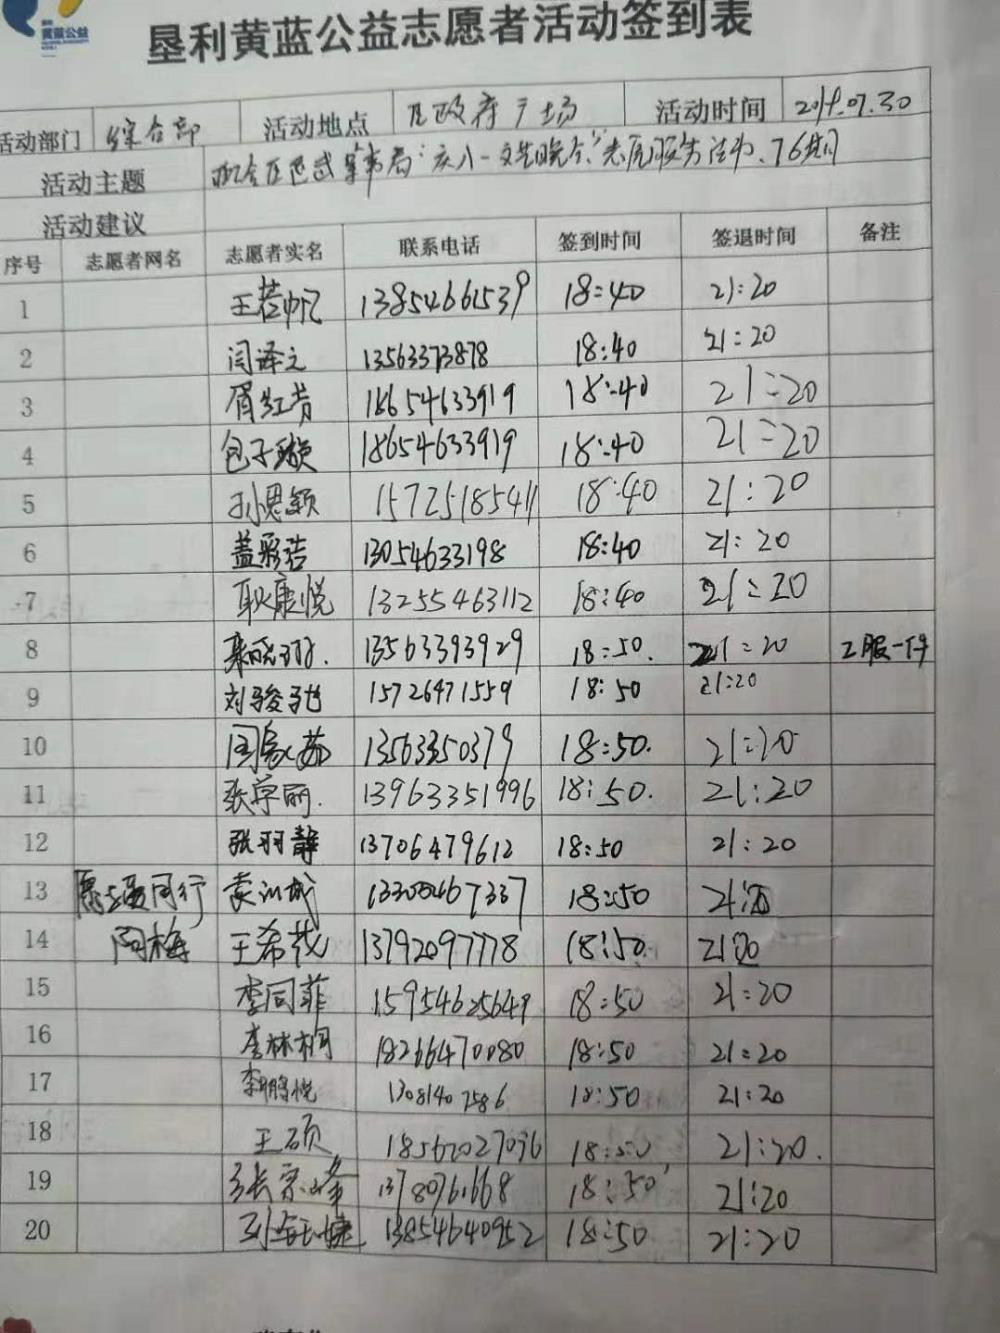 黄蓝公益
垦利黄蓝公益志愿者活动签到表
活动部门 综合部 活动地点 区政府广场 活动时间 2019.07.30
活动主题 配合区 "庆八一文艺晚会"志愿服务活动.76期
活动建议
序号 志愿者网名 志愿者实名 联系电话 签到时间 签退时间 备注
1 王若帆 13854661539 18:40 21:20
2 闫译之 13563373878 18:40 21:20
3 18654633919 18:40 21:20
4 包子璇 18654633919 18:40 21:20
5 孙思颖 15725185411 18:40 21:20
6 盖彩洁 13054633198 18:40 21:20
7 耿康悦 13255463112 18:40 21:20
8 13563393929 18:50. 21:20 工服一件
9 刘骏驰 15726471559 18:50 21:20
10 周家茹 13563350379 18:50. 21:20
11 张卓丽. 13963351996 18:50. 21:20
12 张羽静 13706479612 18:50 21:20
13 同行 18:50 21:20
14 阿梅 王希茂 13792097778 18:50. 21:20
15 李同菲 15954625649 18:50 21:20
16 李林桐 18266470080 18:50 21:20
17 李鹏悦 13081407586 18:50 21:20
18 王硕 18562027036 18:50 21:20.
19 张宗峰 13780761668 18:50 21:20
20 13854640952 18:50 21:20